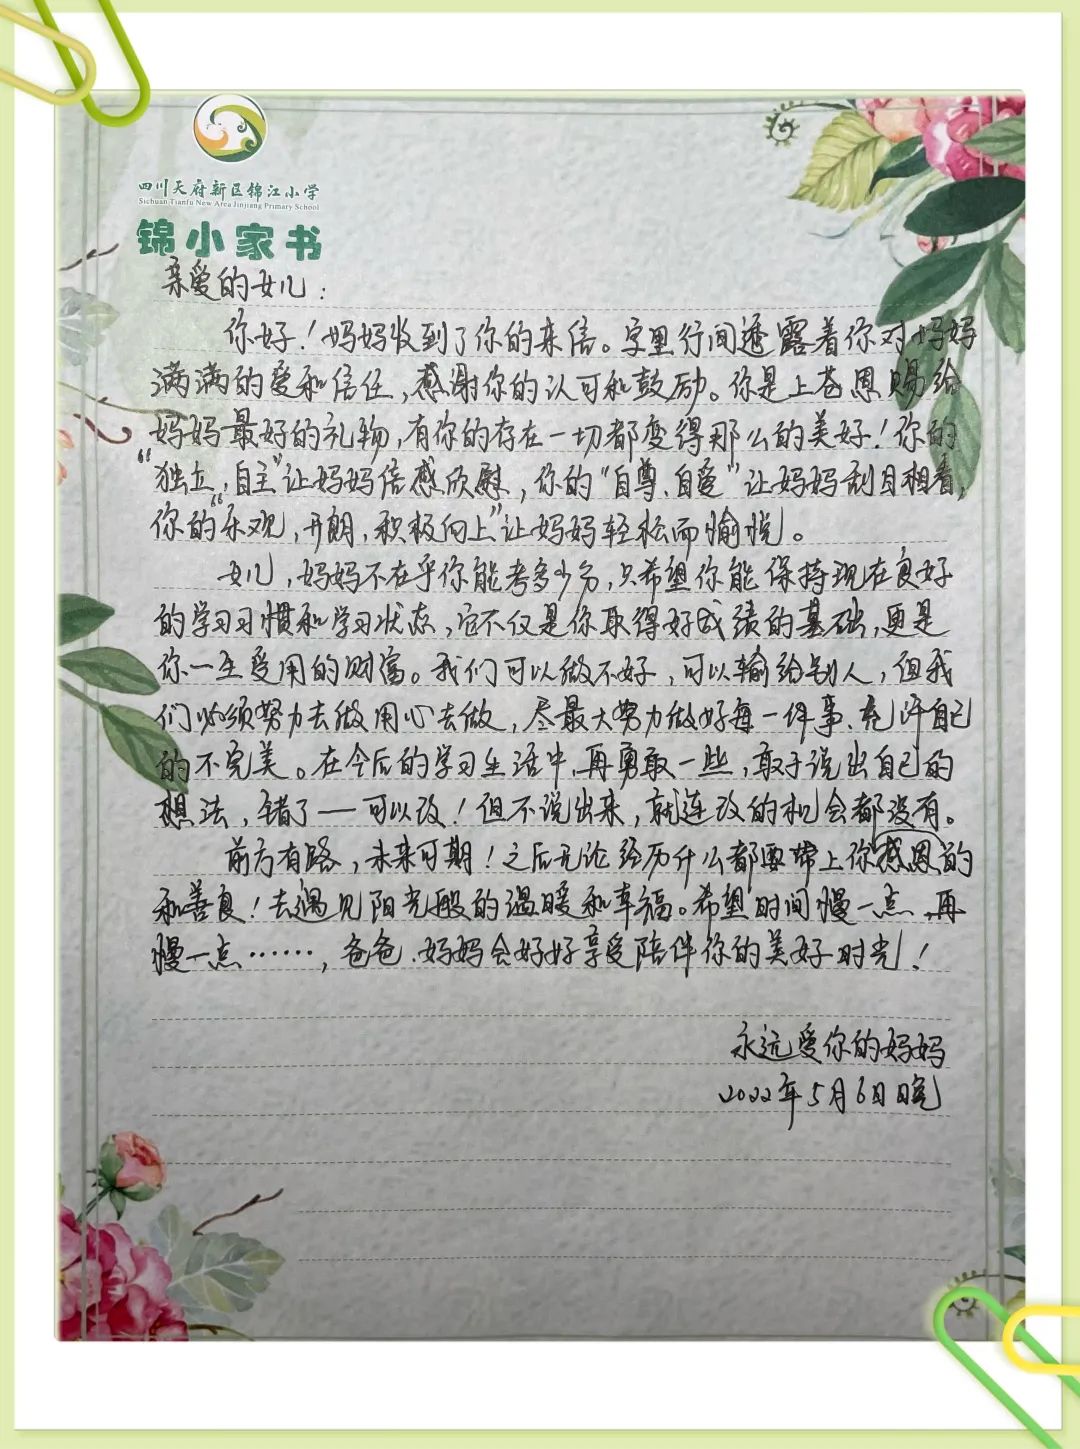 四川天府新区锦江小学
Sichuan Tianfu New Area Jinjiang Primary School
锦小家书
亲爱的女儿：
你好！妈妈收到了你的来信。字里行间透露着你对妈妈
满满的爱和信任，感谢你的认可和鼓励。你是上苍恩赐给
妈妈最好的礼物，有你的存在一切都变得那么的美好！你的
“独立，自主”让妈妈倍感欣慰，你的“自尊、自爱”让妈妈刮目相看，
你的“乐观，开朗，积极向上”让妈妈轻松而愉悦。
女儿，妈妈不在乎你能考多少分，只希望你能保持现在良好
的学习习惯和学习状态，它不仅是你取得好成绩的基础，更是
你一生受用的财富。我们可以做不好，可以输给别人，但我
们必须努力去做用心去做，尽最大努力做好每一件事、允许自己
的不完美。在今后的学习生活中，再勇敢一些，敢于说出自己的
想法，错了——可以改！但不说出来，就连改的机会都没有。
前方有路，未来可期！之后无论经历什么都要带上你感恩的
和善良！去遇见阳光般的温暖和幸福。希望时间慢一点，再
慢一点……，爸爸、妈妈会好好享受陪伴你的美好时光！
永远爱你的妈妈
2022年5月6日晚